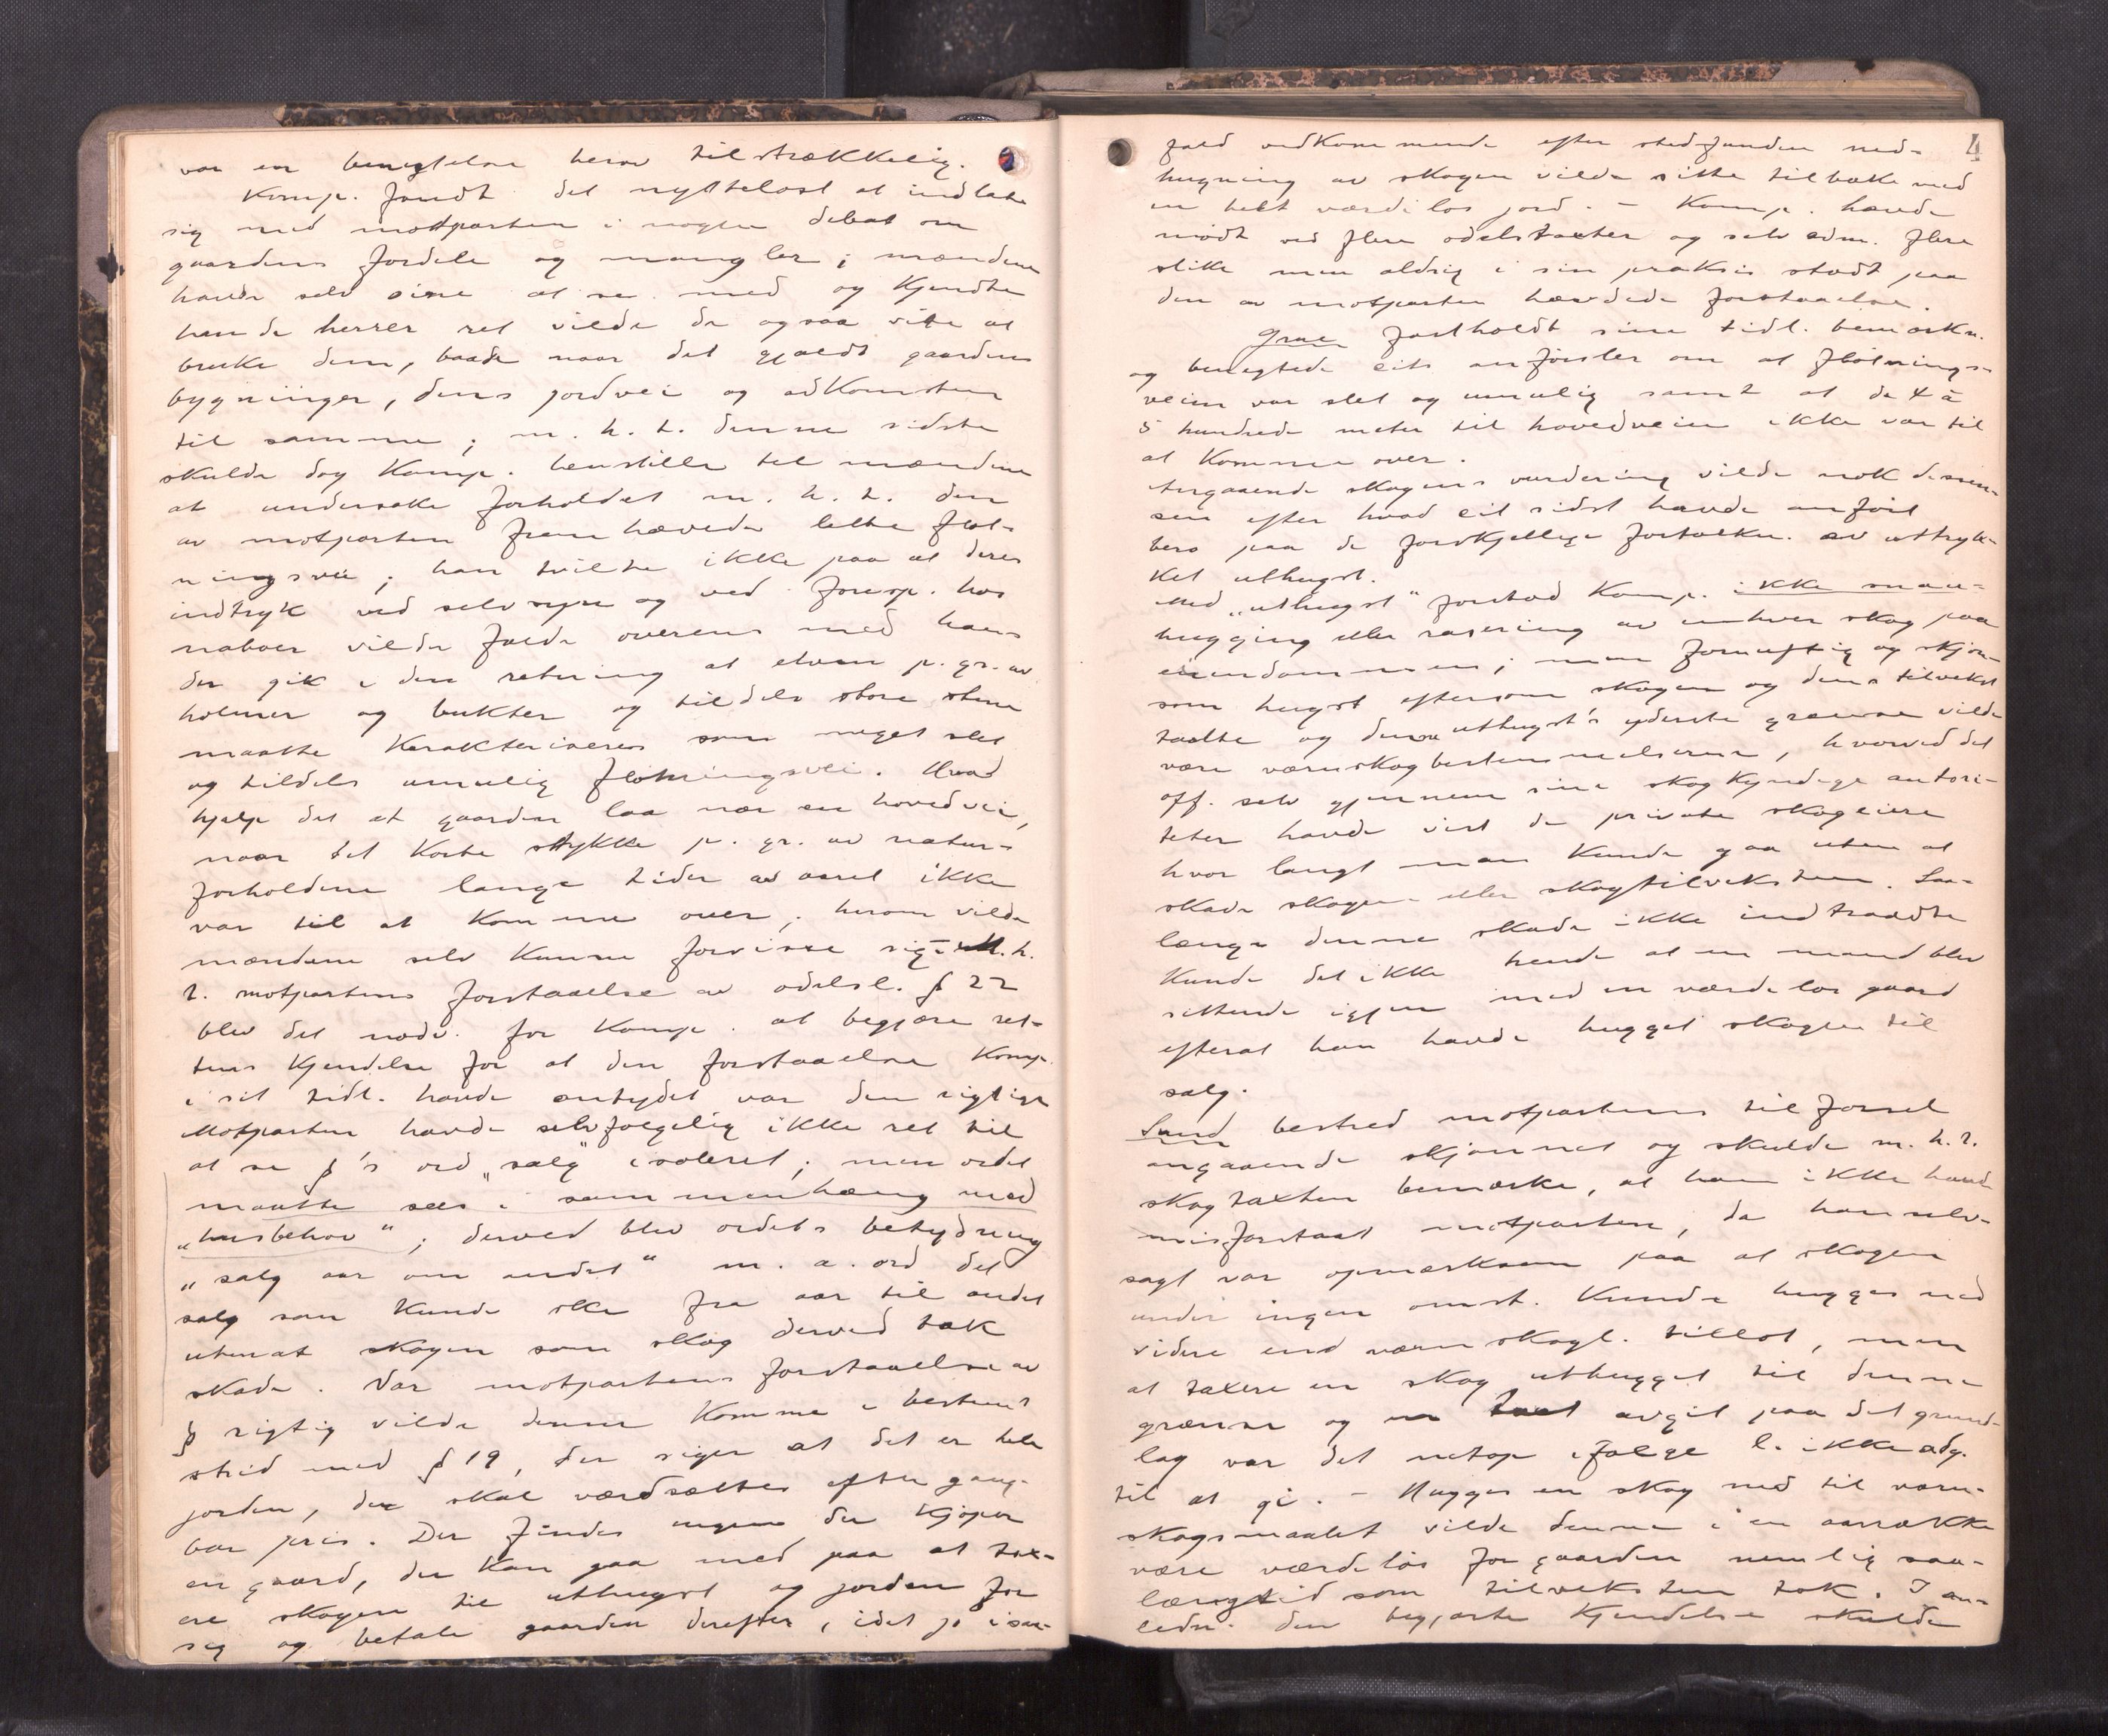 var en benegtelse herav tilstrækkelig.
Komp. fandt det nytteløst at indlate
sig med motparten i nogen debat om
gaardens fordele og mangler; mændene
havde selv øine at se med og kjendte
han de herrer ret vilde de ogsaa vite at
bruke dem, baade naar det gjældt gaardens
bygninger, dens jordvei og adkomsten
til samme; m. h. t. denne sidste
skulde dog Komp. henstille til mændene
at undersøke forholdet m. h. t. den
av motparten fremhævede lette fløt-
ningsvei; han tvilte ikke paa at deres
indtryk ved selvsyn og ved foresp. hos
naboer vilde falde overens med hans
der gik i den retning at elven p. gr. av
holmer og bukter og tildels store stene
maatte karakteriseres som meget slet
og tildels umulig fløtningsvei. Hvad
hjalp det at gaarden laa nær en hovedvei,
naar det korte stykke p. gr. av natur-
forholdene lange tider av aaret ikke
var til at komme over; herom vilde
mændene selv kunne forvisse sig. – M. h.
t. motpartens forstaaelse av odelsl. § 22
blev det nødv. for Komp. at begjære ret-
tens kjendelse for at den forstaaelse Komp.
i sit tidl. havde antydet var den rigtige
Motparten havde selvfølgelig ikke ret til
at se §'s ord „salg" isoleret; men ordet
maatte sees i sammenhæng med
„husbehov"; derved blev ordets betydning
„salg aar om andet" m. a. ord det
salg som kunde ske fra aar til andet
utenat skogen som skog derved tok
skade. Var motpartens forstaaelse av
§ rigtig vilde denne komme i bestemt
strid med § 19, der siger at det er hele
jorden, der skal værdsættes efter gang-
bar pris. Der findes ingen der kjøper
en gaard, der kan gaa med paa at tax-
ere skogen til uthugst og jorden for
sig og betale gaarden derefter, idet jo i saa-
4
fald vedkommende efter stedfunden ned-
hugning av skogen vilde sitte tilbake med
en helt værdiløs jord. – Komp. havde
mødt ved flere odelstaxter og selv adm. flere
slike men aldrig i sin praksis stødt paa
den av motparten hævdede forstaaelse.
fastholdt sine tidl. bemerkn.
og benegtede cits anførsler om at fløtnings-
veien var slet og umulig samt at de 4 à
5 hundrede meter til hovedveien ikke var til
at komme over.
Angaaende skogens vurdering vilde nok dissen-
sen efter hvad cit sidst havde anført
bero paa de forskjellige fortolkn. av uttryk-
ket uthugst.
Med „uthugst" forstod Komp. ikke snau-
hugging eller rasering av enhver skog paa
eiendommen; men fornuftig og skjøn-
som hugst eftersom skogen og dens tilvekst
taalte og denne uthugst's yderste grænse vilde
være værnskogbestemmelserne, hvorved det
off. selv gjennem sine skogkyndige autori-
teter havde vist de private skogeiere
hvor langt man kunde gaa uten at
skade skogen eller skogtilveksten. Saa-
længe denne skade ikke indtraadte
kunde det ikke hende at en mand blev
sittende igjen med en værdeløs gaard
efterat han havde hugget skogen til
salg.
Lund bestred motpartens tilførsel
angaaende skjønnet og skulde m. h. t.
skogtaxten bemærke, at han ikke havde
misforstaat motparten, da han selv-
sagt var opmærksom paa at skogen
under ingen omst. kunde hugges ned
videre end værnskogl. tillot, men
at taxere en skog uthugget til denne
grænse og avgit paa det grund-
lag var det netop ifølge l. ikke adg.
til at gi. – Hugges en skog ned til værn-
skogsmaalet vilde denne i en aarrække
være værdeløs for gaarden nemlig saa-
længe tid som tilveksten tok. I an-
ledn. den begjærte kjendelse skulde